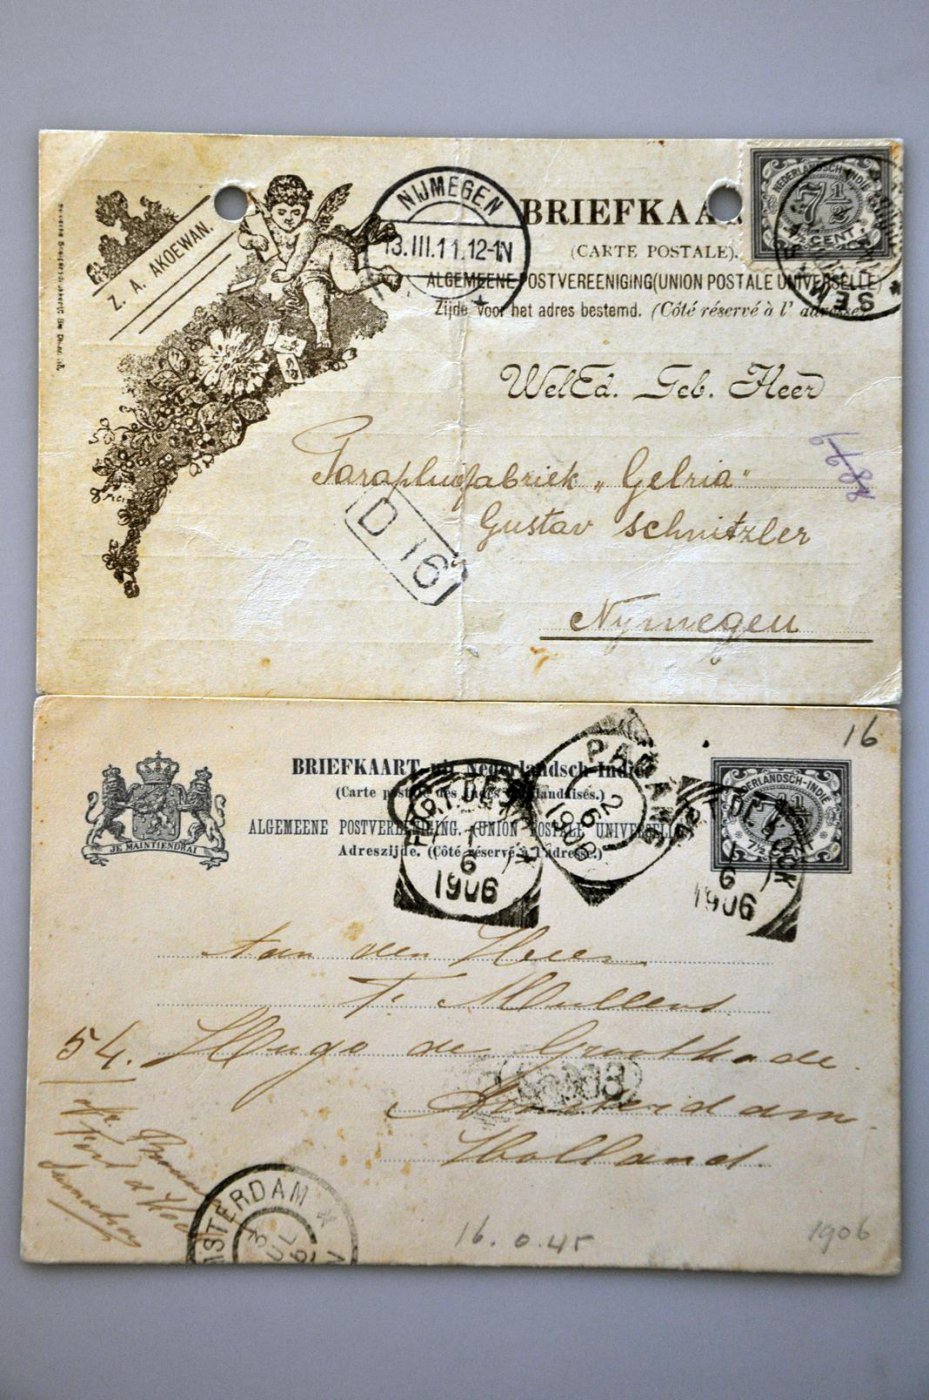 Z. A. AKOEWAN.
NIJMEGEN
13.III.11.12-1N
BRIEFKAA
(CARTE POSTALE).
ALGEMEENE POSTVEREENIGING(UNION POSTALE UNIVERSELLE)
Zijde voor het adres bestemd. (Côté réservé à l' adresse
NEDERLANDSCH-INDIË
7½
CENT
WelEd. Geb. Heer
Parapluiefabriek „Gelria"
Gustav Schnitzler
D 16
Nymegen
16
BRIEFKAART uit Nederlandsch-Indië
(Carte postale des Indes néerlandaises.)
ALGEMEENE POSTVEREENIGING. (UNION POSTALE UNIVERSELLE
Adreszijde. (Côté réservé à l'adresse.)
JE MAINTIENDRAI
FORT DE KOCK
1906
PADANG
2
6
1906
NEDERLANDSCH-INDIË
7½
FORT DE KOCK
6
1906
Aan den Heer
F. Mullens
54. Hugo de Grootkade
Amsterdam
Holland.
Fort d Kock
Sumatra
AMSTERDAM
16. 0.45
1906